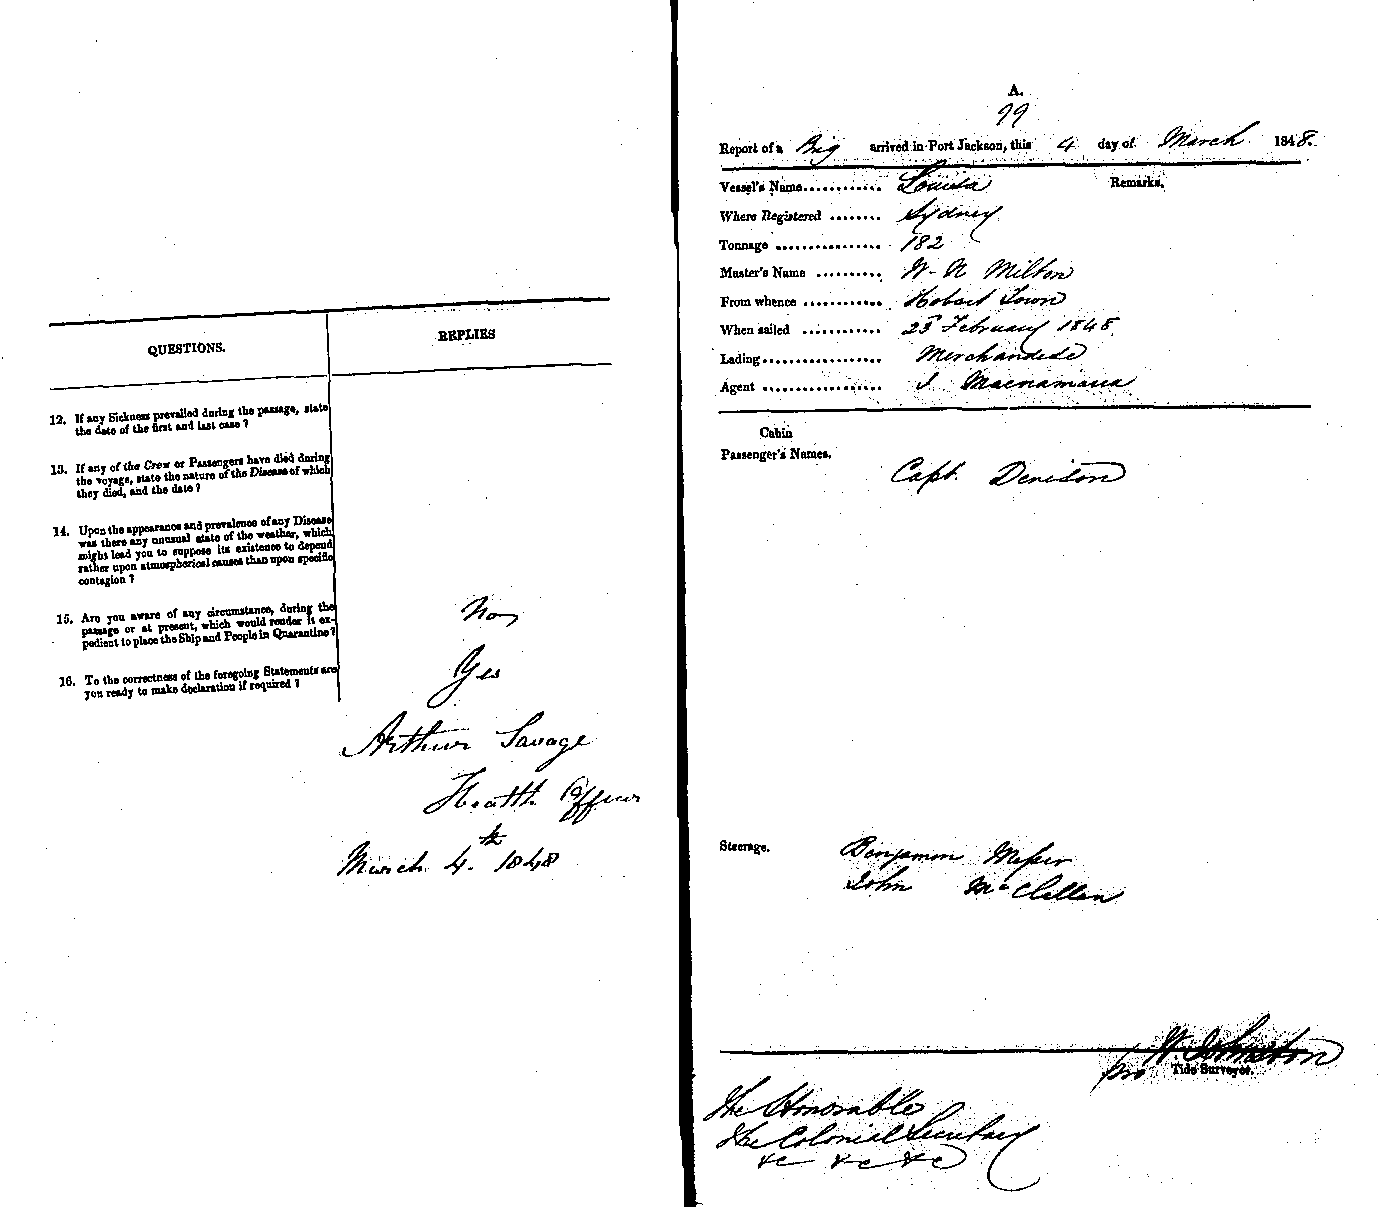 QUESTIONS.
REPLIES
12. If any Sickness prevailed during the passage, state
the date of the first and last case ?
13. If any of the Crew or Passengers have died during
the voyage, state the nature of the Disease of which
they died, and the date ?
14. Upon the appearance and prevalence of any Disease
was there any unusual state of the weather, which
might lead you to suppose its existence to depend
rather upon atmospherical causes than upon specific
contagion ?
15. Are you aware of any circumstance, during the
passage or at present, which would render it ex-
pedient to place the Ship and People in Quarantine ?
No
16. To the correctness of the foregoing Statements are
you ready to make declaration if required ?
Yes
Arthur Savage
Health Officer
March 4th 1848
A.
99
Report of a Brig arrived in Port Jackson, this 4 day of March 1848.
Vessel's Name............ Louisa Remarks.
Where Registered ........ Sydney
Tonnage ................ 182
Master's Name .......... W. N Milton
From whence ............ Hobart Town
When sailed ............ 23 February 1848
Lading.................. Merchandise
Agent .................. J Macnamara
Cabin
Passenger's Names.
Capt. Denison
Steerage. Benjamin
John McClellan
W. Johnston
pro Tide Surveyor.
The Honorable
The Colonial Secretary
&c &c &c